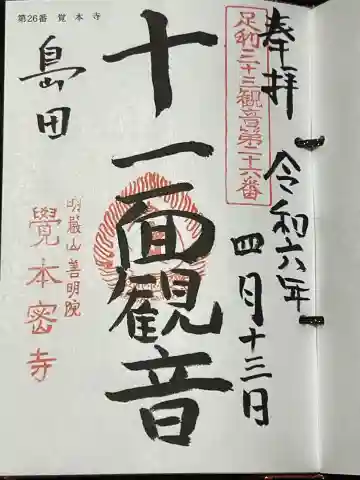 奉拝
足利三十三観音第二十六番
令和六年
四月十三日
十一面観音
第26番 覚本寺
島田
明巖山 善明院
覺本密寺